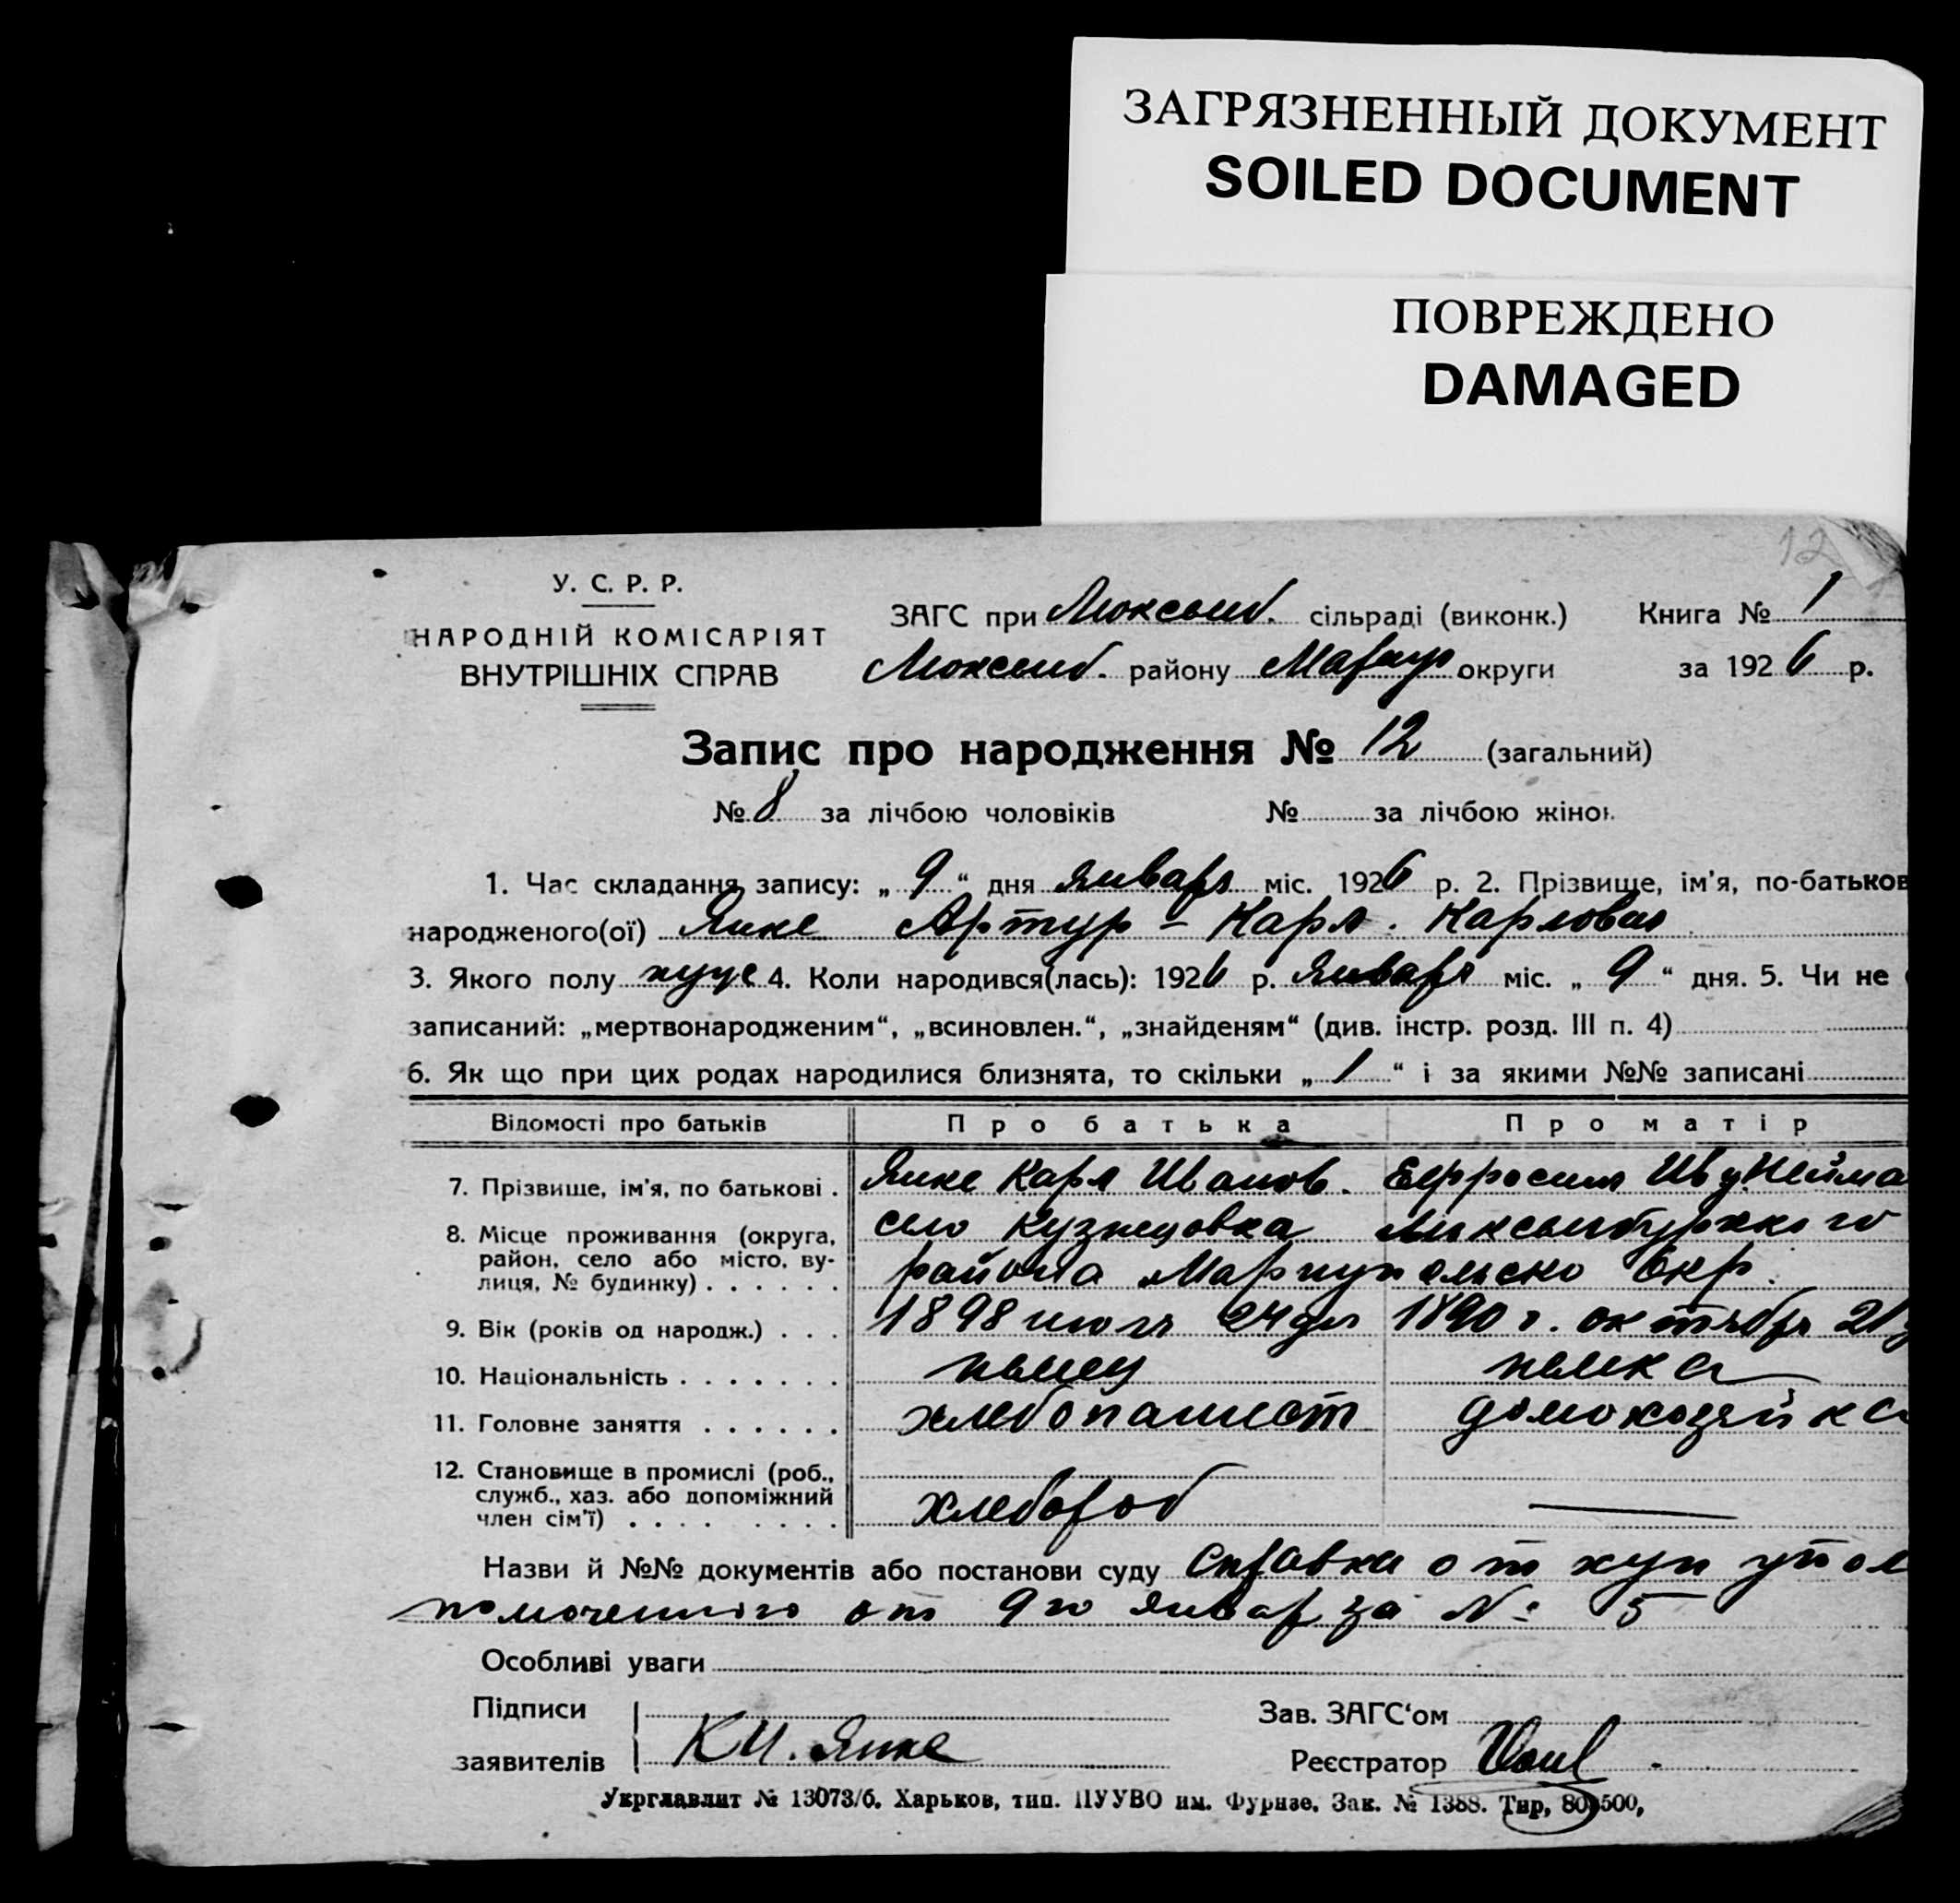 ЗАГРЯЗНЕННЫЙ ДОКУМЕНТ
SOILED DOCUMENT
ПОВРЕЖДЕНО
DAMAGED
12
У. С. Р. Р.
НАРОДНІЙ КОМІСАРІЯТ
ВНУТРІШНІХ СПРАВ
ЗАГС при Люксемб. сільраді (виконк.) Книга № 1
Люксемб. району Мариуп округи за 1926 р.
Запис про народження № 12 (загальний)
№ 8 за лічбою чоловіків № за лічбою жінок
1. Час складання запису: „ 9 “ дня января міс. 1926 р. 2. Прізвище, ім'я, по-батьков
народженого(ої) Янке Артур - Карл. Карлович
3. Якого полу муж 4. Коли народився(лась): 1926 р. Января міс. „ 9 “ дня. 5. Чи не
записаний: „мертвонародженим“, „всиновлен.“, „знайденям“ (див. інстр. розд. III п. 4)
6. Як що при цих родах народилися близнята, то скільки „ 1 “ і за якими №№ записані
Відомості про батьків Про батька Про матір
7. Прізвище, ім'я, по батькові . Янке Карл Иванов. Ефросиня Ив у. Нейма
8. Місце проживання (округа, село Кузнецовка Люксембургского
район, село або місто, ву-
лиця, № будинку) . . . . . . района Мариупольско Окр.
9. Вік (років од народж.) . . . 1898 июля 24 дня 1890 г. октября 21
10. Національність . . . . . . . немец немка
11. Головне заняття . . . . . . хлебопашест домохозяйка
12. Становище в промислі (роб.,
служб., хаз. або допоміжний
член сім'ї) . . . . . . . . . хлебороб —
Назви й №№ документів або постанови суду Справка от упол
номоченного от 9го января за № 5
Особливі уваги
Підписи
заявителів К И. Янке
Зав. ЗАГС‘ом
Реєстратор
Укрглавлит № 13073/б. Харьков, тип. ПУУВО им. Фрунзе. Зак. № 1388. Тир, 80.500,